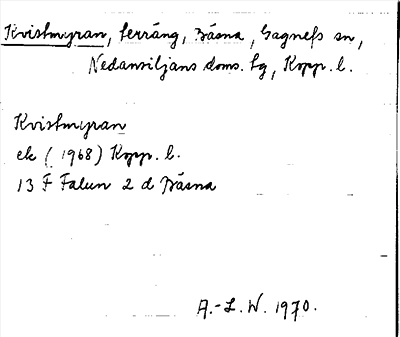 Kvistmyran, terräng, Bäsna, Gagnefs sn,
Nedansiljans doms. tg, Kopp. l.
Kvistmyran
ek (1968) Kopp. l.
13 F Falun 2 d Bäsna
A.-L. W. 1970.